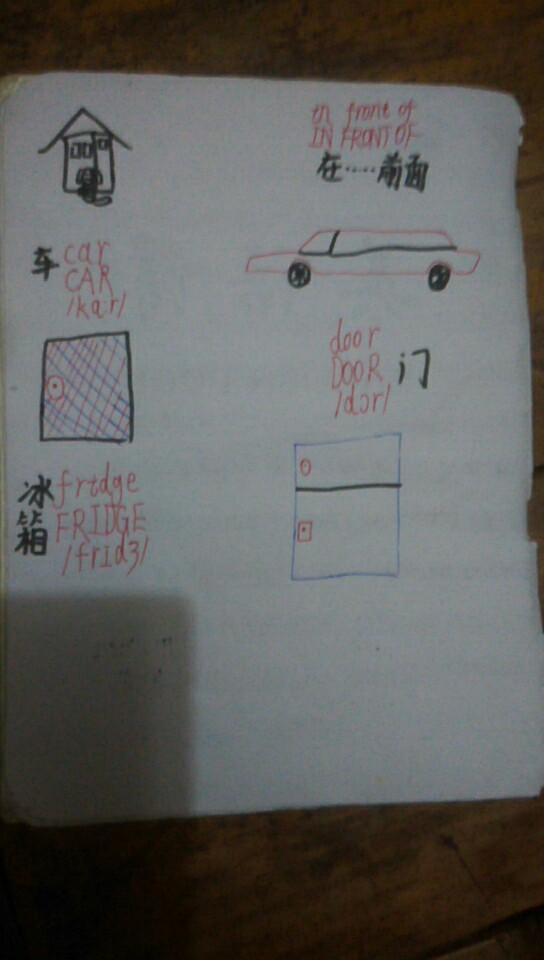 in front of
IN FRONT OF
在……前面
车 car
CAR
/kar/
door
DOOR 门
/dɔr/
冰箱 fridge
FRIDGE
/fridʒ/